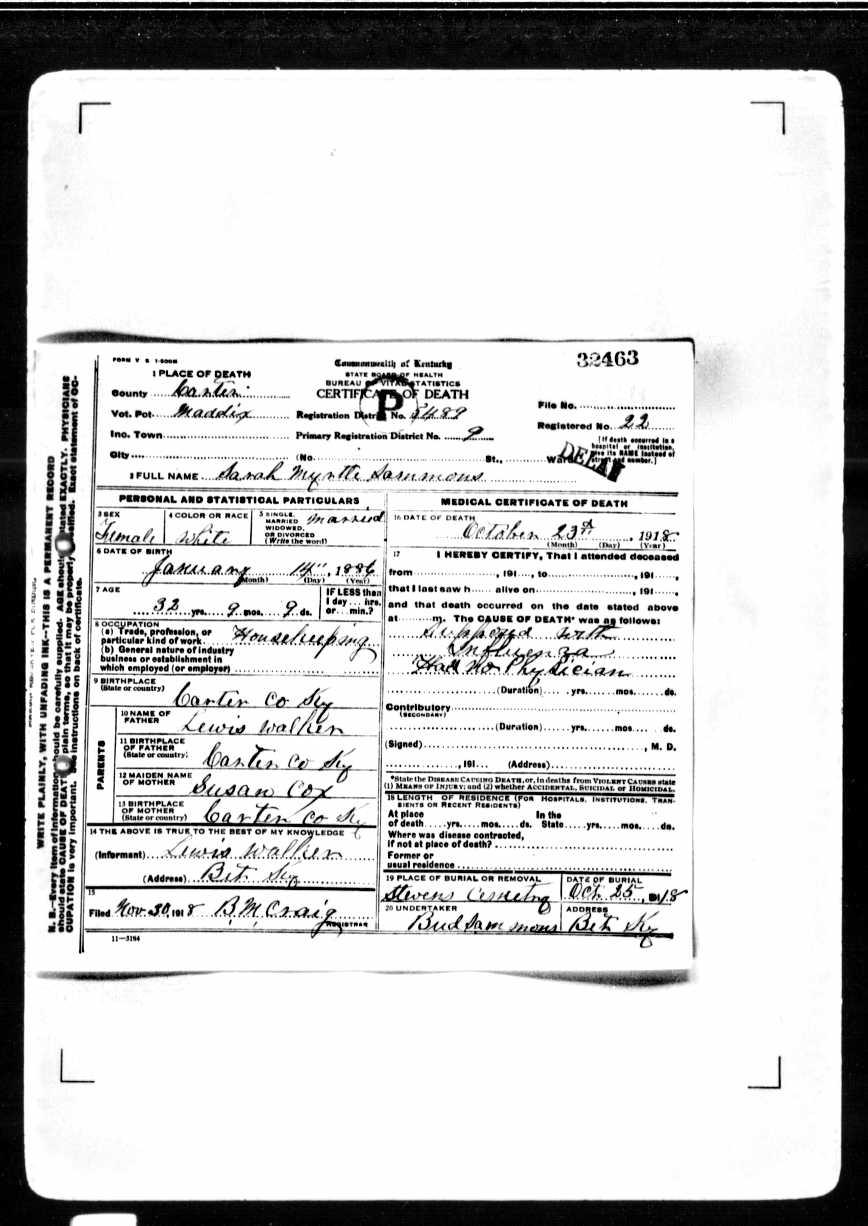 FORM V S 1-500M
Commonwealth of Kentucky
32463
STATE BOARD OF HEALTH
BUREAU OF VITAL STATISTICS
CERTIFICATE OF DEATH
P
1 PLACE OF DEATH
County Carter
Vot. Pct. Maddix
Registration District No. 5489
File No.
Inc. Town
Primary Registration District No. 9
Registered No. 22
City (No. St., Ward)
[If death occurred in a hospital or institution, give its NAME instead of street and number.]
2 FULL NAME Sarah Myrtle Sammons
PERSONAL AND STATISTICAL PARTICULARS
3 SEX Female
4 COLOR OR RACE White
5 SINGLE, MARRIED, WIDOWED, OR DIVORCED (Write the word) Married
6 DATE OF BIRTH
January 14", 1886
(Month) (Day) (Year)
7 AGE
32 yrs. 9 mos. 9 ds.
IF LESS than 1 day ... hrs. or ... min.?
8 OCCUPATION
(a) Trade, profession, or particular kind of work. Housekeeping
(b) General nature of industry business or establishment in which employed (or employer)
9 BIRTHPLACE
(State or country) Carter Co Ky
PARENTS
10 NAME OF FATHER Lewis Walker
11 BIRTHPLACE OF FATHER (State or country) Carter Co Ky
12 MAIDEN NAME OF MOTHER Susan Cox
13 BIRTHPLACE OF MOTHER (State or country) Carter Co Ky
14 THE ABOVE IS TRUE TO THE BEST OF MY KNOWLEDGE
(Informant) Lewis Walker
(Address) Bet. Ky
15
Filed Nov. 30, 1918 B. M. Craig
REGISTRAR
11-3184
MEDICAL CERTIFICATE OF DEATH
16 DATE OF DEATH
October 23rd, 1918
(Month) (Day) (Year)
17 I HEREBY CERTIFY, That I attended deceased
from , 191 , to , 191 ,
that I last saw h alive on , 191 ,
and that death occurred on the date stated above
at m. The CAUSE OF DEATH* was as follows:
Supposed with
Influenza
Had No Physician
(Duration) yrs. mos. ds.
Contributory
(SECONDARY)
(Duration) yrs. mos. ds.
(Signed) , M. D.
, 191 (Address)
*State the DISEASE CAUSING DEATH, or, in deaths from VIOLENT CAUSES state
(1) MEANS OF INJURY; and (2) whether ACCIDENTAL, SUICIDAL or HOMICIDAL.
18 LENGTH OF RESIDENCE (FOR HOSPITALS, INSTITUTIONS, TRANSIENTS OR RECENT RESIDENTS)
At place of death yrs. mos. ds. In the State yrs. mos. ds.
Where was disease contracted,
if not at place of death?
Former or
usual residence
19 PLACE OF BURIAL OR REMOVAL
Stevens Cemetry
DATE OF BURIAL
Oct. 25, 1918
20 UNDERTAKER
Bud Sammons
ADDRESS
Bet Ky
WRITE PLAINLY, WITH UNFADING INK—THIS IS A PERMANENT RECORD